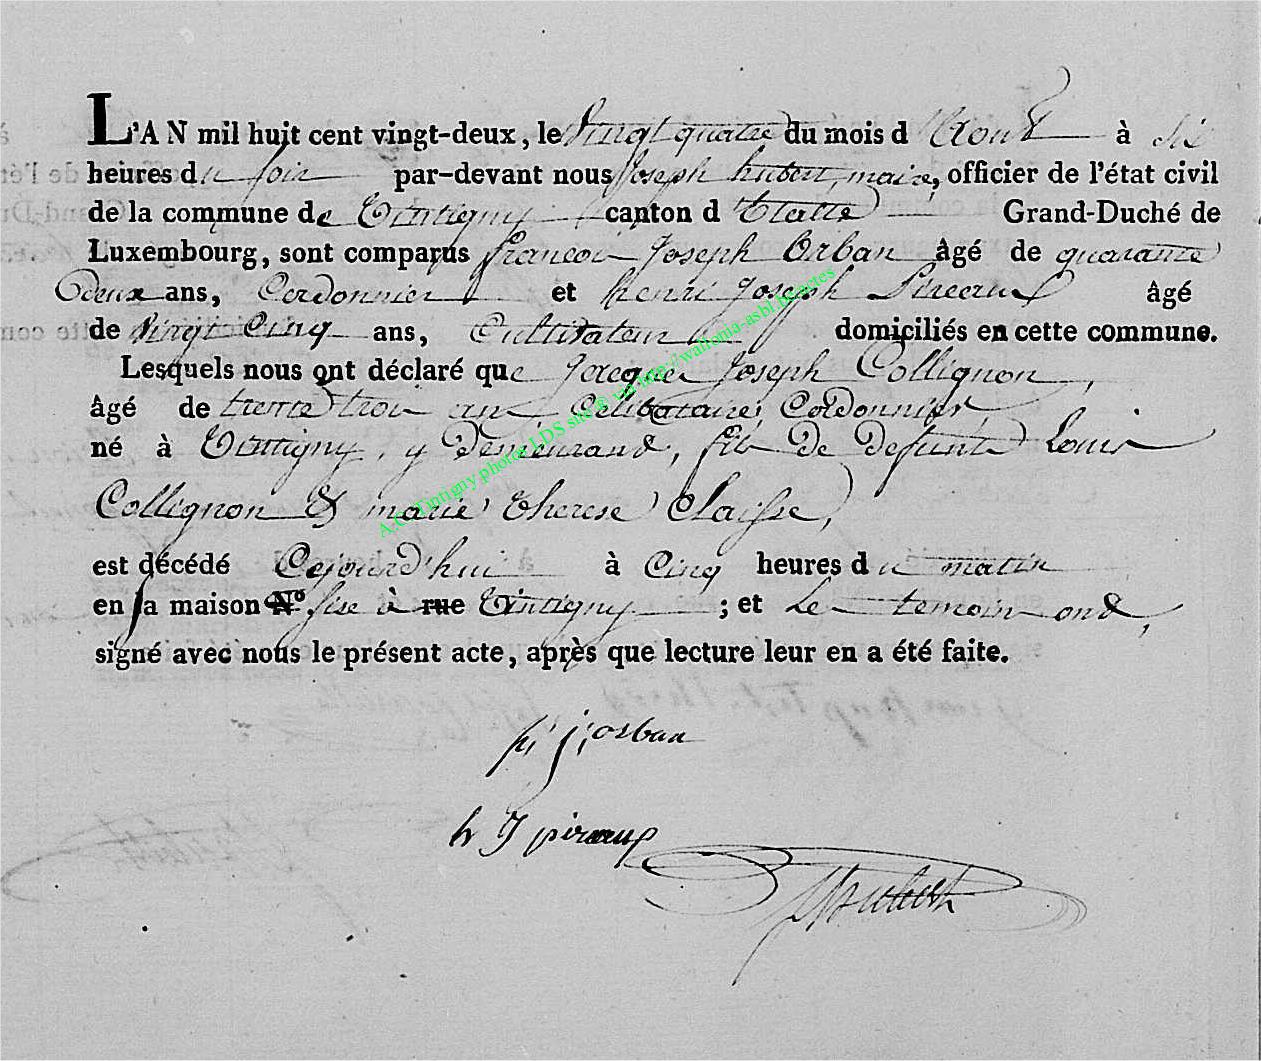 L'AN mil huit cent vingt-deux, le Vingt quatre du mois d'Aout à six
heures du soir par-devant nous Joseph hubert, maire, officier de l'état civil
de la commune de Tintigny canton d'Etalle Grand-Duché de
Luxembourg, sont comparus francois Joseph Orban âgé de quarante
Deux ans, Cordonnier et henri Joseph âgé
de vingt Cinq ans, Cultivateur domiciliés en cette commune.
Lesquels nous ont déclaré que Jacques Joseph Collignon,
âgé de trente trois ans Celibataire, Cordonnier
né à Tintigny, y Demeurand, fils De Defunts Louis
Collignon & marie therese Claisse,
est décédé Cejourd'hui à Cinq heures du matin
en sa maison N.º sise à rue Tintigny ; et Les temoins ond,
signé avec nous le présent acte, après que lecture leur en a été faite.
fr j orban
h J piraux
J hubert
A.C. Tintigny photos LDS site © via http://wallonia-asbl.be/actes